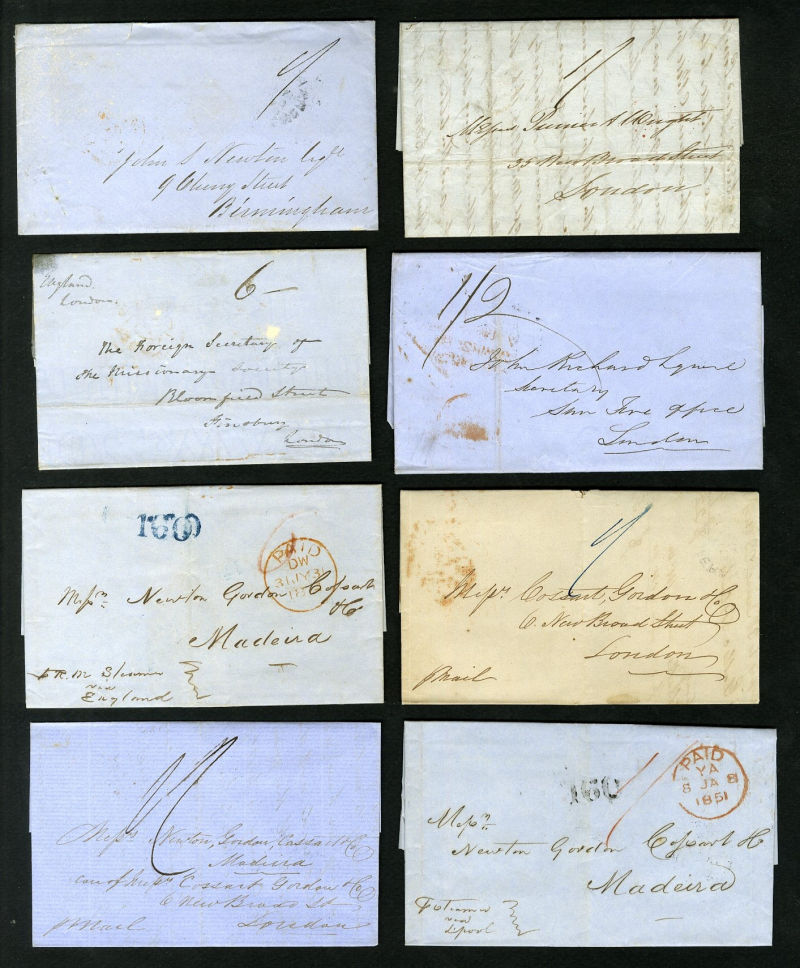 1/
John S Newton Esqre
9 Cherry Street
Birmingham
1/
Messrs Wright
35 New Broad Street
London
6
England
London.
The Foreign Secretary of
the Missionary Society
Bloomfield Street
Finsbury
London
1/2
John Richard Squire
Secretary
Sun Fire Office
London
160
PAID
DW
31 JY 31
18
Messrs Newton Gordon Cossart
& Co
Madeira
p R. M Steamer
via
England
1/
Messrs Cossart, Gordon & Co
6. New Broad Street
London
p Mail
Messrs Newton, Gordon, Cossart & Co
Madeira
care of Messrs Cossart Gordon & Co
6 New Broad St
London
p Mail
160
1/
PAID
YA
8 JA 8
1851
Messrs
Newton Gordon Cossart & Co
Madeira
p Steamer
via
Lpool